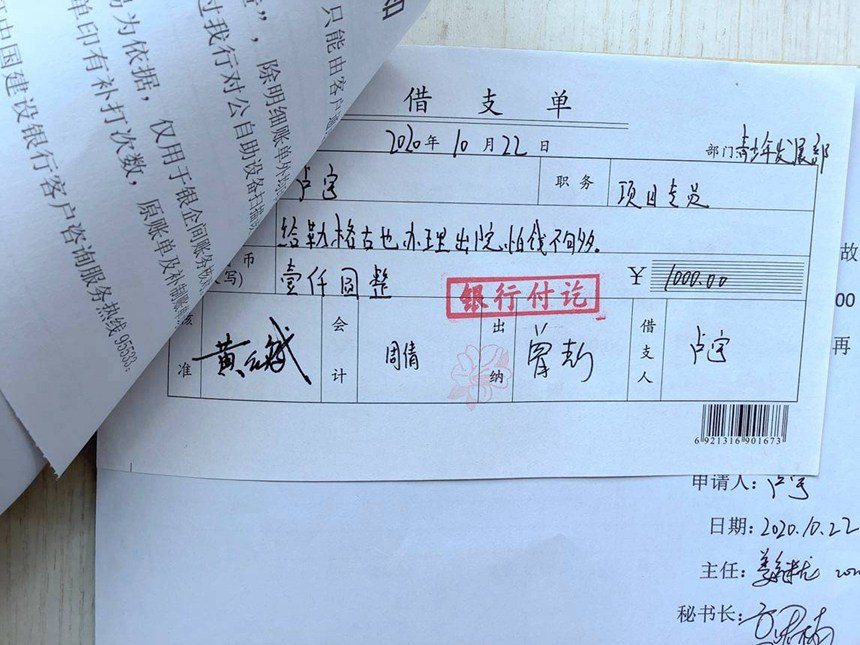 只能由客户
除明细账单外
过我行对公自助设备打印
为依据，仅用于银企间账务核对
单印有补打次数，原账单及补制账单
中国建设银行客户咨询服务热线95533。
借支单
2020年10月22日
部门 青少年发展部
卢宇 职务 项目专员
给勒格古也办理出院，怕钱不够。
币
写) 壹仟圆整 ¥ 1000.00
银行付讫
准 会计 周倩 出纳 曾彭 借支人 卢宇
6 921316 901673
故
00
再
申请人：卢宇
日期：2020.10.22
主任：
秘书长：